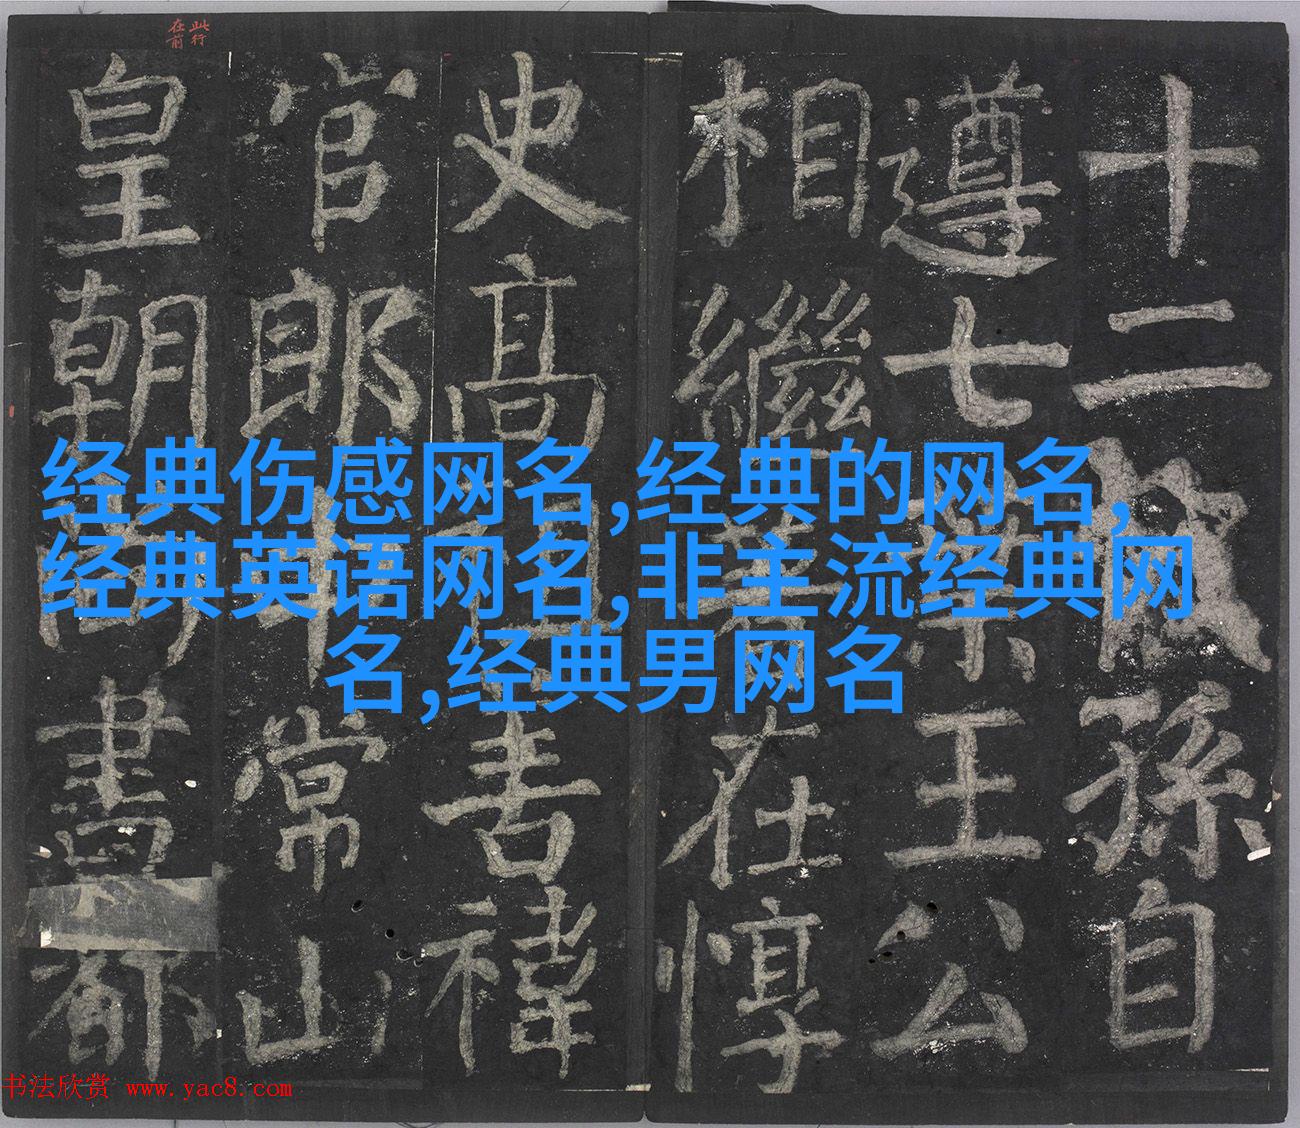 此行
在前
十二孫自
遵七王公
相繼在惇
史高禕
官郎中常山
皇朝尚書都
经典伤感网名,经典的网名,
经典英语网名,非主流经典网
名,经典男网名
书法欣赏 www.yac8.com